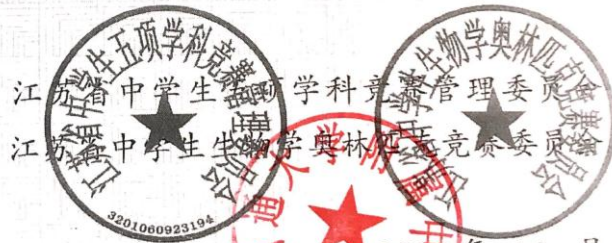 江苏省中学生五项学科竞赛管理委员会
江苏省中学生生物学奥林匹克竞赛委员会
江苏省中学生五项学科竞赛管理委员会
3201060923194
江苏省中学生生物学奥林匹克竞赛委员会
通大学附属中
年 月